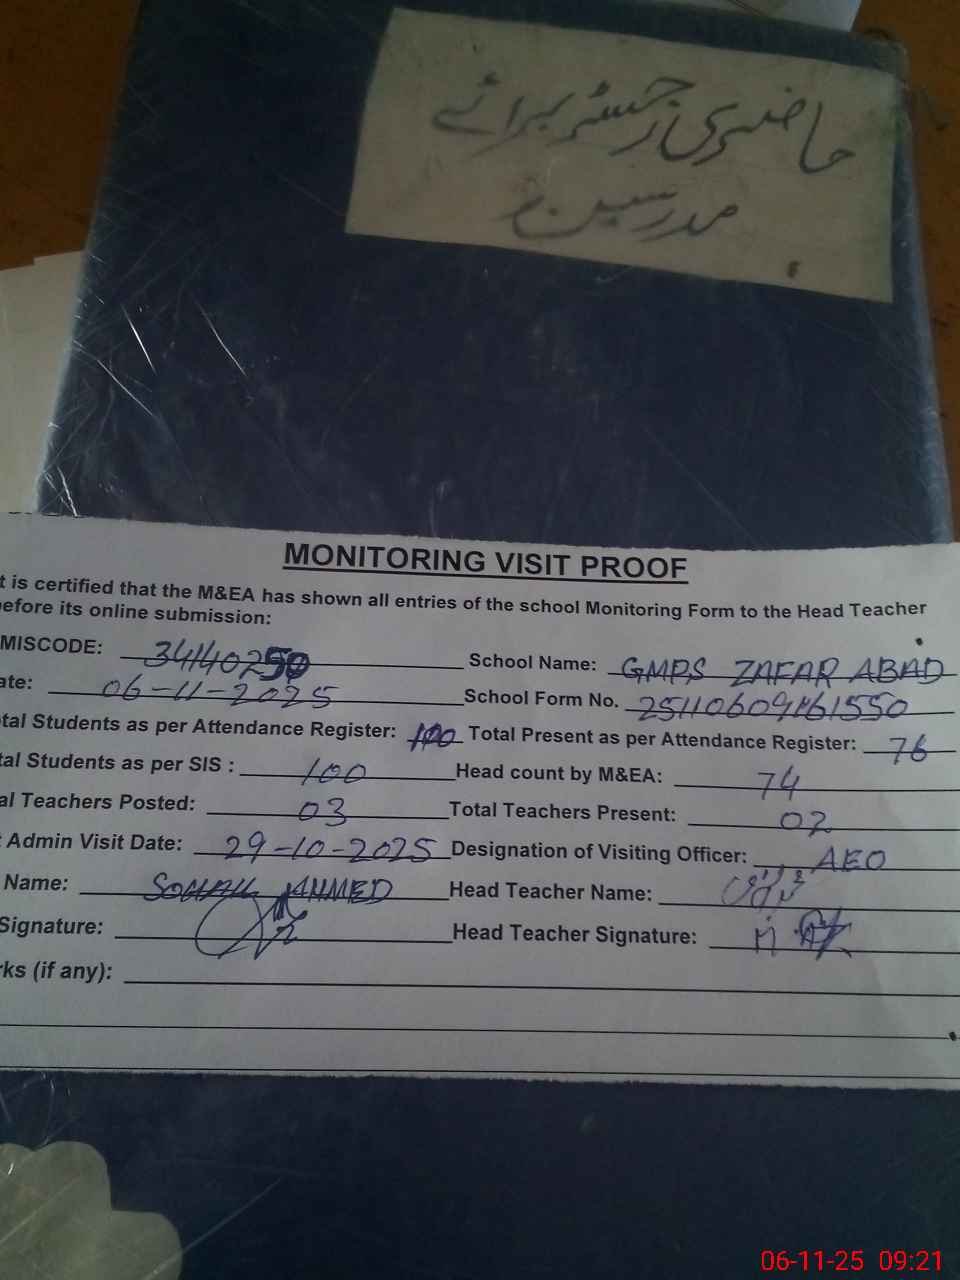 حاضری رجسٹر برائے
مدرسین
MONITORING VISIT PROOF
t is certified that the M&EA has shown all entries of the school Monitoring Form to the Head Teacher
efore its online submission:
MISCODE: 34140250 School Name: GMPS ZAFAR ABAD
ate: 06-11-2025 School Form No. 25110609161550
tal Students as per Attendance Register: 100 Total Present as per Attendance Register: 76
tal Students as per SIS : 100 Head count by M&EA: 74
al Teachers Posted: 03 Total Teachers Present: 02
Admin Visit Date: 29-10-2025 Designation of Visiting Officer: AEO
Name: SOHAIL AHMED Head Teacher Name:
Signature: Head Teacher Signature:
rks (if any):
06-11-25 09:21